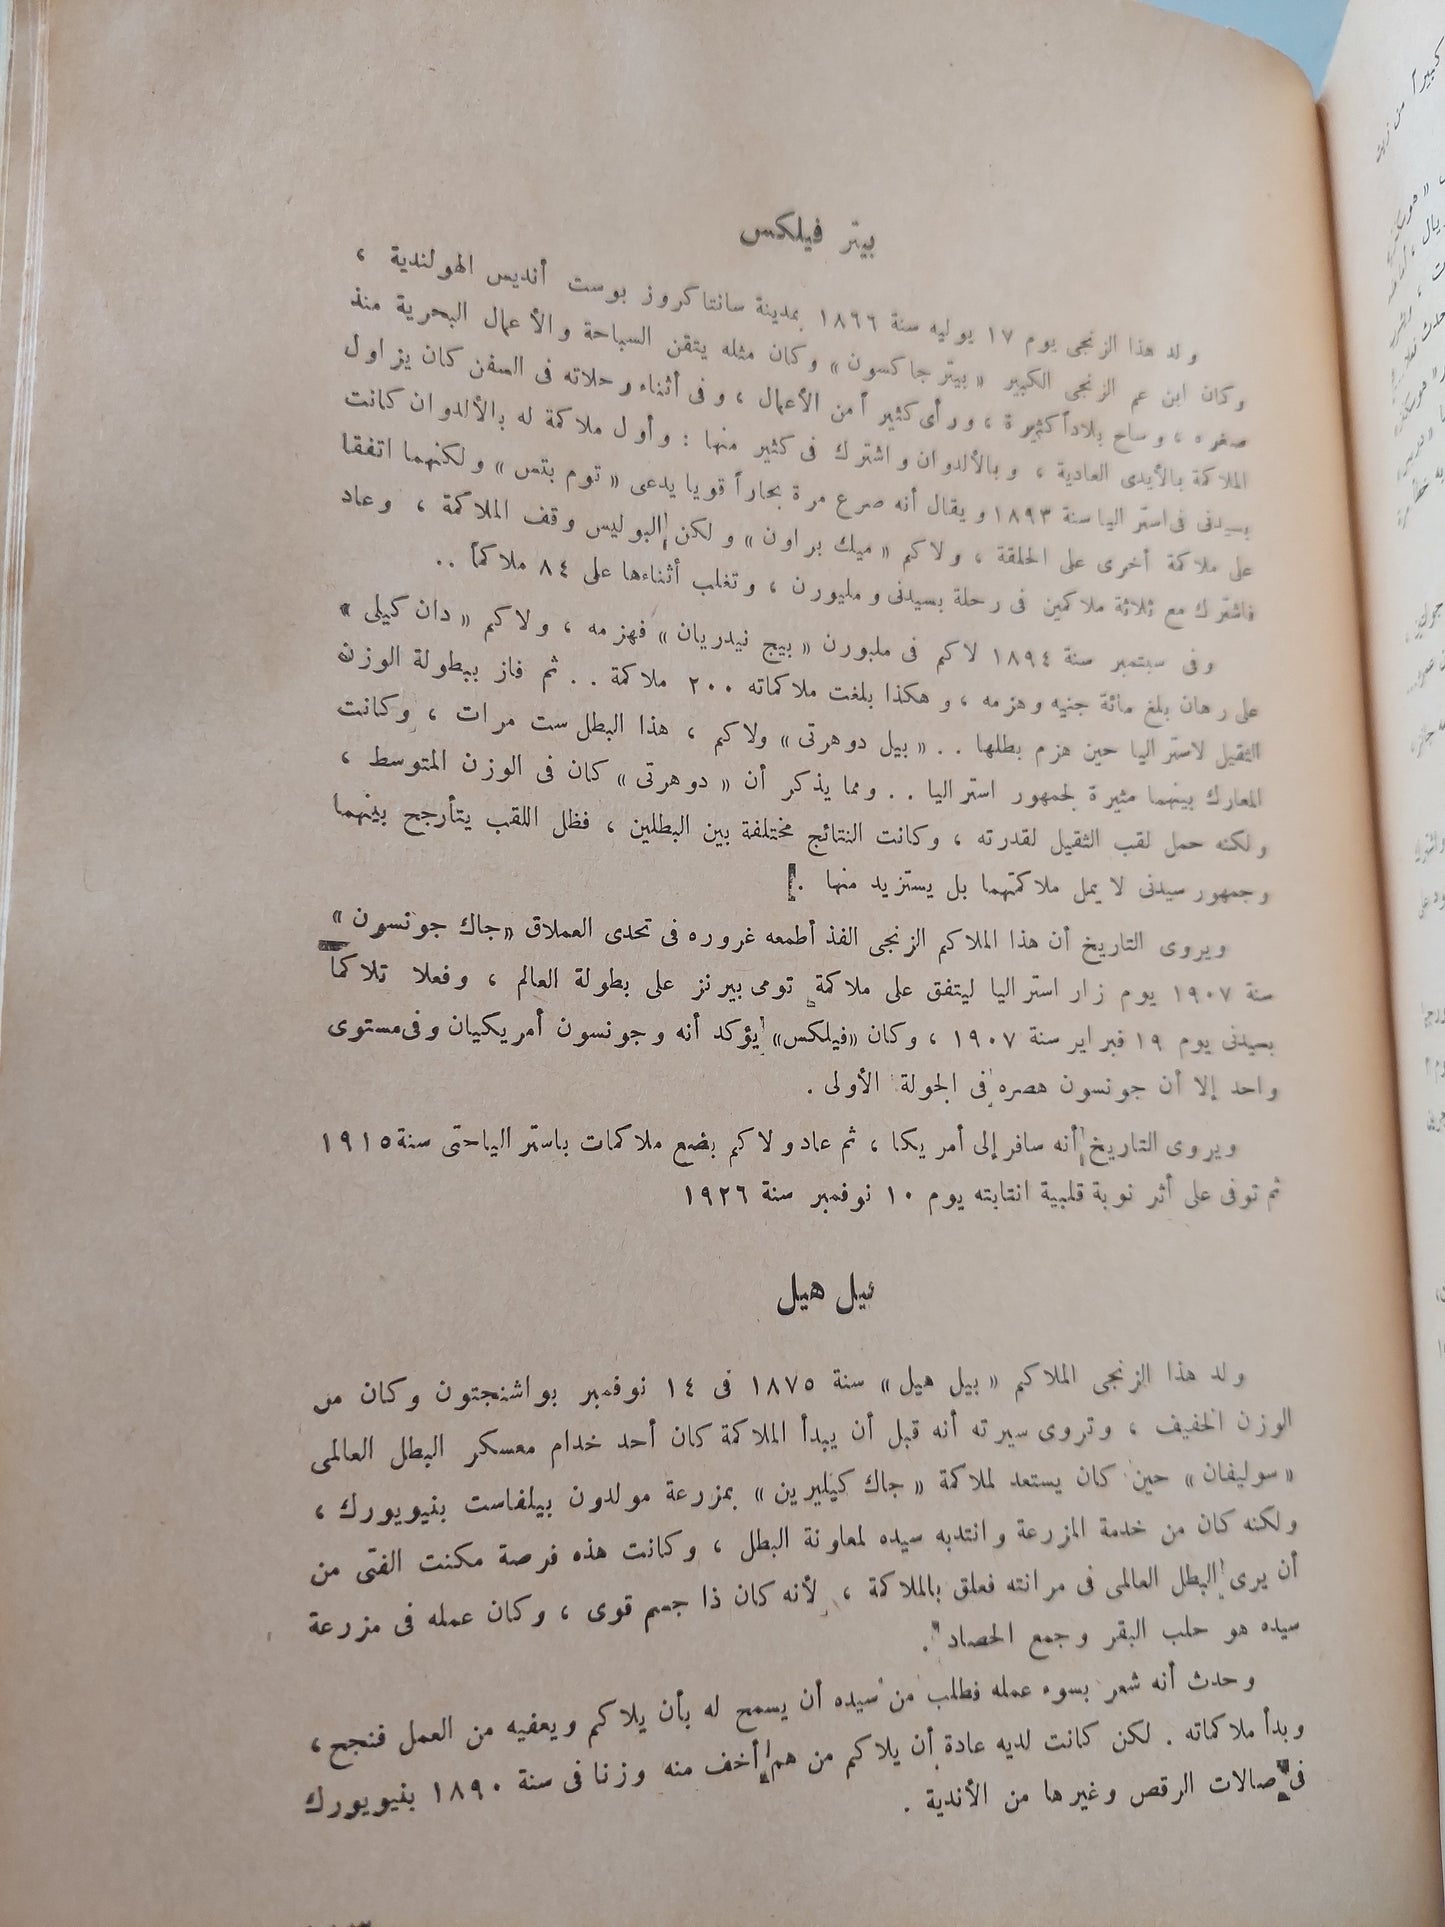 بيتر فيلكس
ولد هذا الزنجى يوم ١٧ يوليه سنة ١٨٩٦ بمدينة سانتاكروز بوست أنديس الهولندية ،
وكان ابن عم الزنجى الكبير « بيتر جاكسون » وكان مثله يتقن السباحة والأعمال البحرية منذ
صغره ، وساح بلاداً كثيرة ، ورأى كثيراً من الأعمال ، وفى أثناء رحلاته فى السفن كان يزاول
الملاكمة بالأيدى العادية ، وبالألدوان واشترك فى كثير منها : وأول ملاكمة له بالألدوان كانت
بسيدنى فى استراليا سنة ١٨٩٣ ويقال أنه صرع مرة بحاراً قويا يدعى « توم بتس » ولكنهما اتفقا
على ملاكمة أخرى على الحلقة ، ولاكم « ميك براون » ولكن البوليس وقف الملاكمة ، وعاد
فاشترك مع ثلاثة ملاكمين فى رحلة بسيدنى ومليورن ، وتغلب أثناءها على ٨٤ ملاكماً ..
وفى سبتمبر سنة ١٨٩٤ لاكم فى ملبورن « بيج نيدريان » فهزمه ، ولاكم « دان كيلى »
على رهان بلغ مائة جنيه وهزمه ، وهكذا بلغت ملاكماته ٢٠٠ ملاكمة .. ثم فاز ببطولة الوزن
الثقيل لاستراليا حين هزم بطلها .. « بيل دوهرتى » ولاكم ، هذا البطل ست مرات ، وكانت
المعارك بينهما مثيرة لجمهور استراليا .. ومما يذكر أن « دوهرتى » كان فى الوزن المتوسط ،
ولكنه حمل لقب الثقيل لقدرته ، وكانت النتائج مختلفة بين البطلين ، فظل اللقب يتأرجح بينهما
وجمهور سيدنى لا يمل ملاكمتهما بل يستزيد منها .
ويروى التاريخ أن هذا الملاكم الزنجى الفذ أطمعه غروره فى تحدى العملاق « جاك جونسون »
سنة ١٩٠٧ يوم زار استراليا ليتفق على ملاكمة تومى بيرنز على بطولة العالم ، وفعلا تلاكما
بسيدنى يوم ١٩ فبراير سنة ١٩٠٧ ، وكان «فيلكس» يؤكد أنه وجونسون أمريكيان وفى مستوى
واحد إلا أن جونسون هصره فى الجولة الأولى .
ويروى التاريخ أنه سافر إلى أمريكا ، ثم عاد ولاكم بضع ملاكمات باستراليا حتى سنة ١٩١٥
ثم توفى على أثر نوبة قلبية انتابته يوم ١٠ نوفمبر سنة ١٩٢٦
بيل هيل
ولد هذا الزنجى الملاكم « بيل هيل » سنة ١٨٧٥ فى ١٤ نوفمبر بواشنجتون وكان من
الوزن الخفيف ، وتروى سيرته أنه قبل أن يبدأ الملاكمة كان أحد خدام معسكر البطل العالمى
« سوليفان » حين كان يستعد لملاكمة « جاك كيليرين » بمزرعة مولدون بيلفاست بنيويورك ،
ولكنه كان من خدمة المزرعة وانتدبه سيده لمعاونة البطل ، وكانت هذه فرصة مكنت الفتى من
أن يرى البطل العالمى فى مرانته فعلق بالملاكمة ، لأنه كان ذا جسم قوى ، وكان عمله فى مزرعة
سيده هو حلب البقر وجمع الحصاد .
وحدث أنه شعر بسوء عمله فطلب من سيده أن يسمح له بأن يلاكم ويعفيه من العمل فنجح ،
وبدأ ملاكماته . لكن كانت لديه عادة أن يلاكم من هم أخف منه وزنا فى سنة ١٨٩٠ بنيويورك
فى صالات الرقص وغيرها من الأندية .